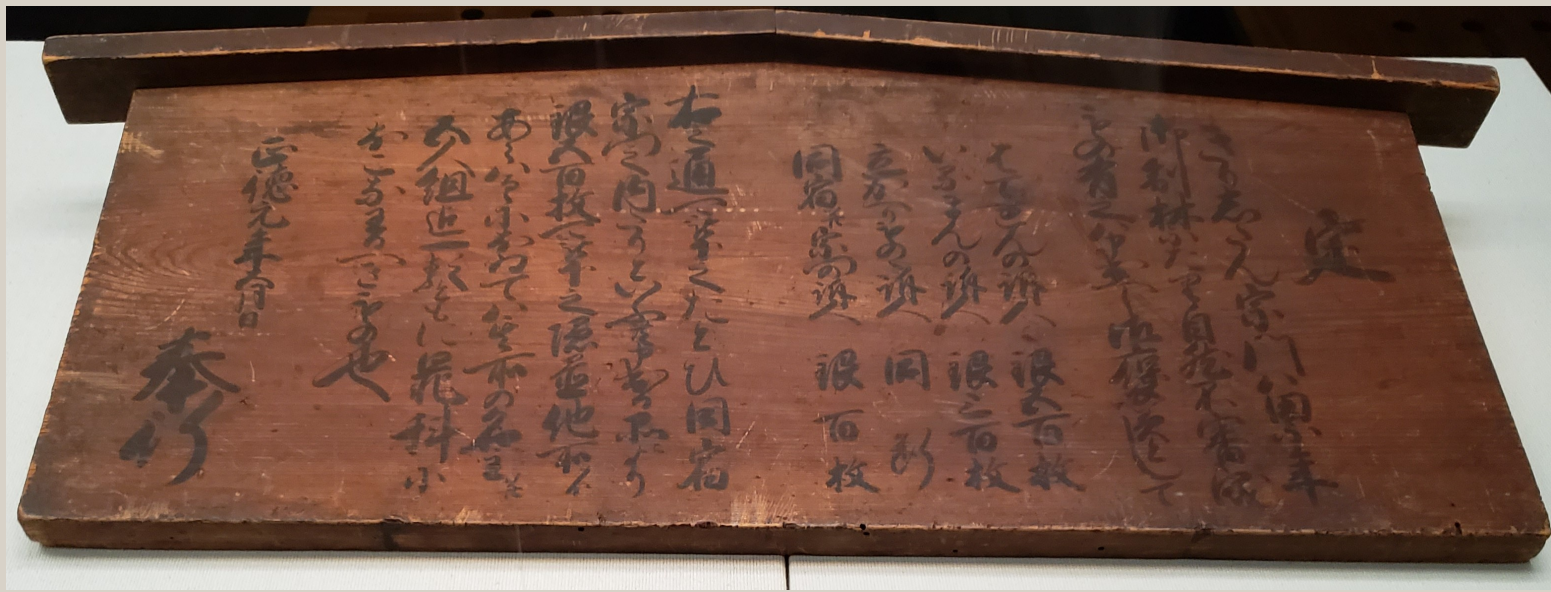 定
きりしたん宗門累年
御制禁たり自然不審成
もの有之ハ申出へし御褒美として
はてれんの訴人 銀五百枚
いるまんの訴人 銀三百枚
立かへり者の訴人 同断
同宿并宗門の訴人 銀百枚
右之通可被下之たとひ同宿
宗門之内たりといふとも訴人に出る品により
銀五百枚可被下之隠置他所より
あらハるゝにおゐてハ其所の名主并
五人組迄一類ともに罪科に
おこなはるへきもの也
正徳元年五月日
奉行